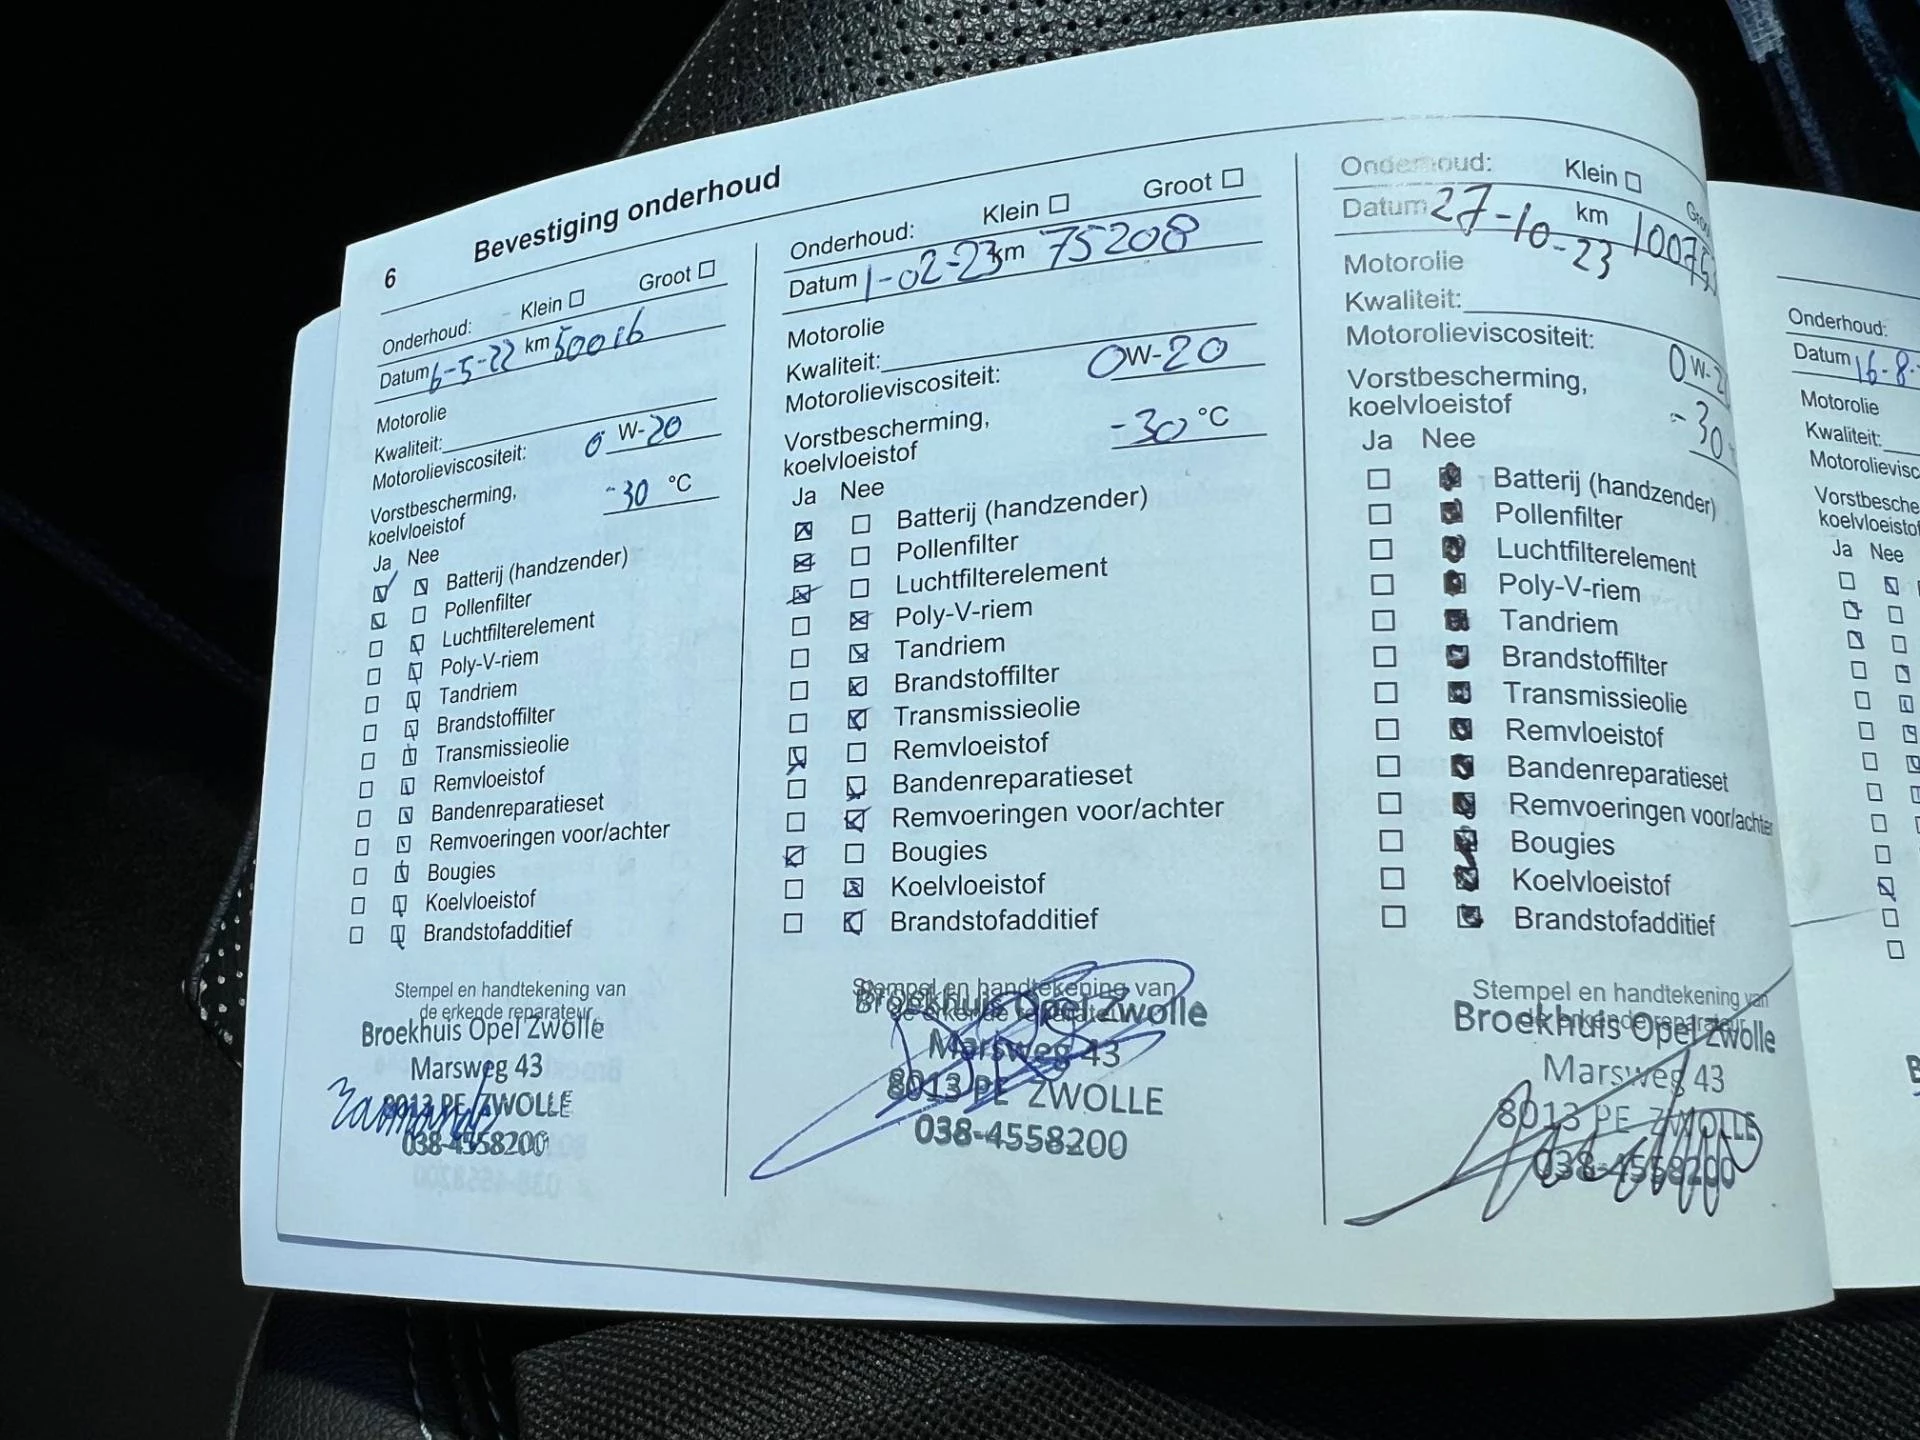 6
Bevestiging onderhoud
Onderhoud: Klein Groot
Datum 6-5-22 km 50016
Motorolie
Kwaliteit:
Motorolieviscositeit: 0 W-20
Vorstbescherming,
koelvloeistof -30 °C
Ja Nee
Batterij (handzender)
Pollenfilter
Luchtfilterelement
Poly-V-riem
Tandriem
Brandstoffilter
Transmissieolie
Remvloeistof
Bandenreparatieset
Remvoeringen voor/achter
Bougies
Koelvloeistof
Brandstofadditief
Stempel en handtekening van
de erkende reparateur
Broekhuis Opel Zwolle
Marsweg 43
8013 PE ZWOLLE
038-4558200
Onderhoud: Klein Groot
Datum 1-02-23 km 75208
Motorolie
Kwaliteit:
Motorolieviscositeit: 0W-20
Vorstbescherming,
koelvloeistof -30 °C
Ja Nee
Batterij (handzender)
Pollenfilter
Luchtfilterelement
Poly-V-riem
Tandriem
Brandstoffilter
Transmissieolie
Remvloeistof
Bandenreparatieset
Remvoeringen voor/achter
Bougies
Koelvloeistof
Brandstofadditief
Stempel en handtekening van
de erkende reparateur
Broekhuis Opel Zwolle
Marsweg 43
8013 PE ZWOLLE
038-4558200
Onderhoud: Klein
Datum 27-10-23 km
Motorolie
Kwaliteit:
Motorolieviscositeit: 0W-2
Vorstbescherming,
koelvloeistof -30
Ja Nee
Batterij (handzender)
Pollenfilter
Luchtfilterelement
Poly-V-riem
Tandriem
Brandstoffilter
Transmissieolie
Remvloeistof
Bandenreparatieset
Remvoeringen voor/achter
Bougies
Koelvloeistof
Brandstofadditief
Stempel en handtekening van
de erkende reparateur
Broekhuis Opel Zwolle
Marsweg 43
8013 PE ZWOLLE
038-4558200
Onderhoud:
Datum 16-8-
Motorolie
Kwaliteit:
Motorolievisc
Vorstbesche
koelvloeisto
Ja Nee